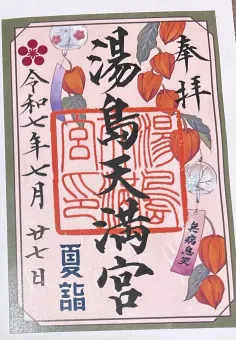 奉拝
湯島天満宮
令和七年七月廿七日
夏詣
無病息災